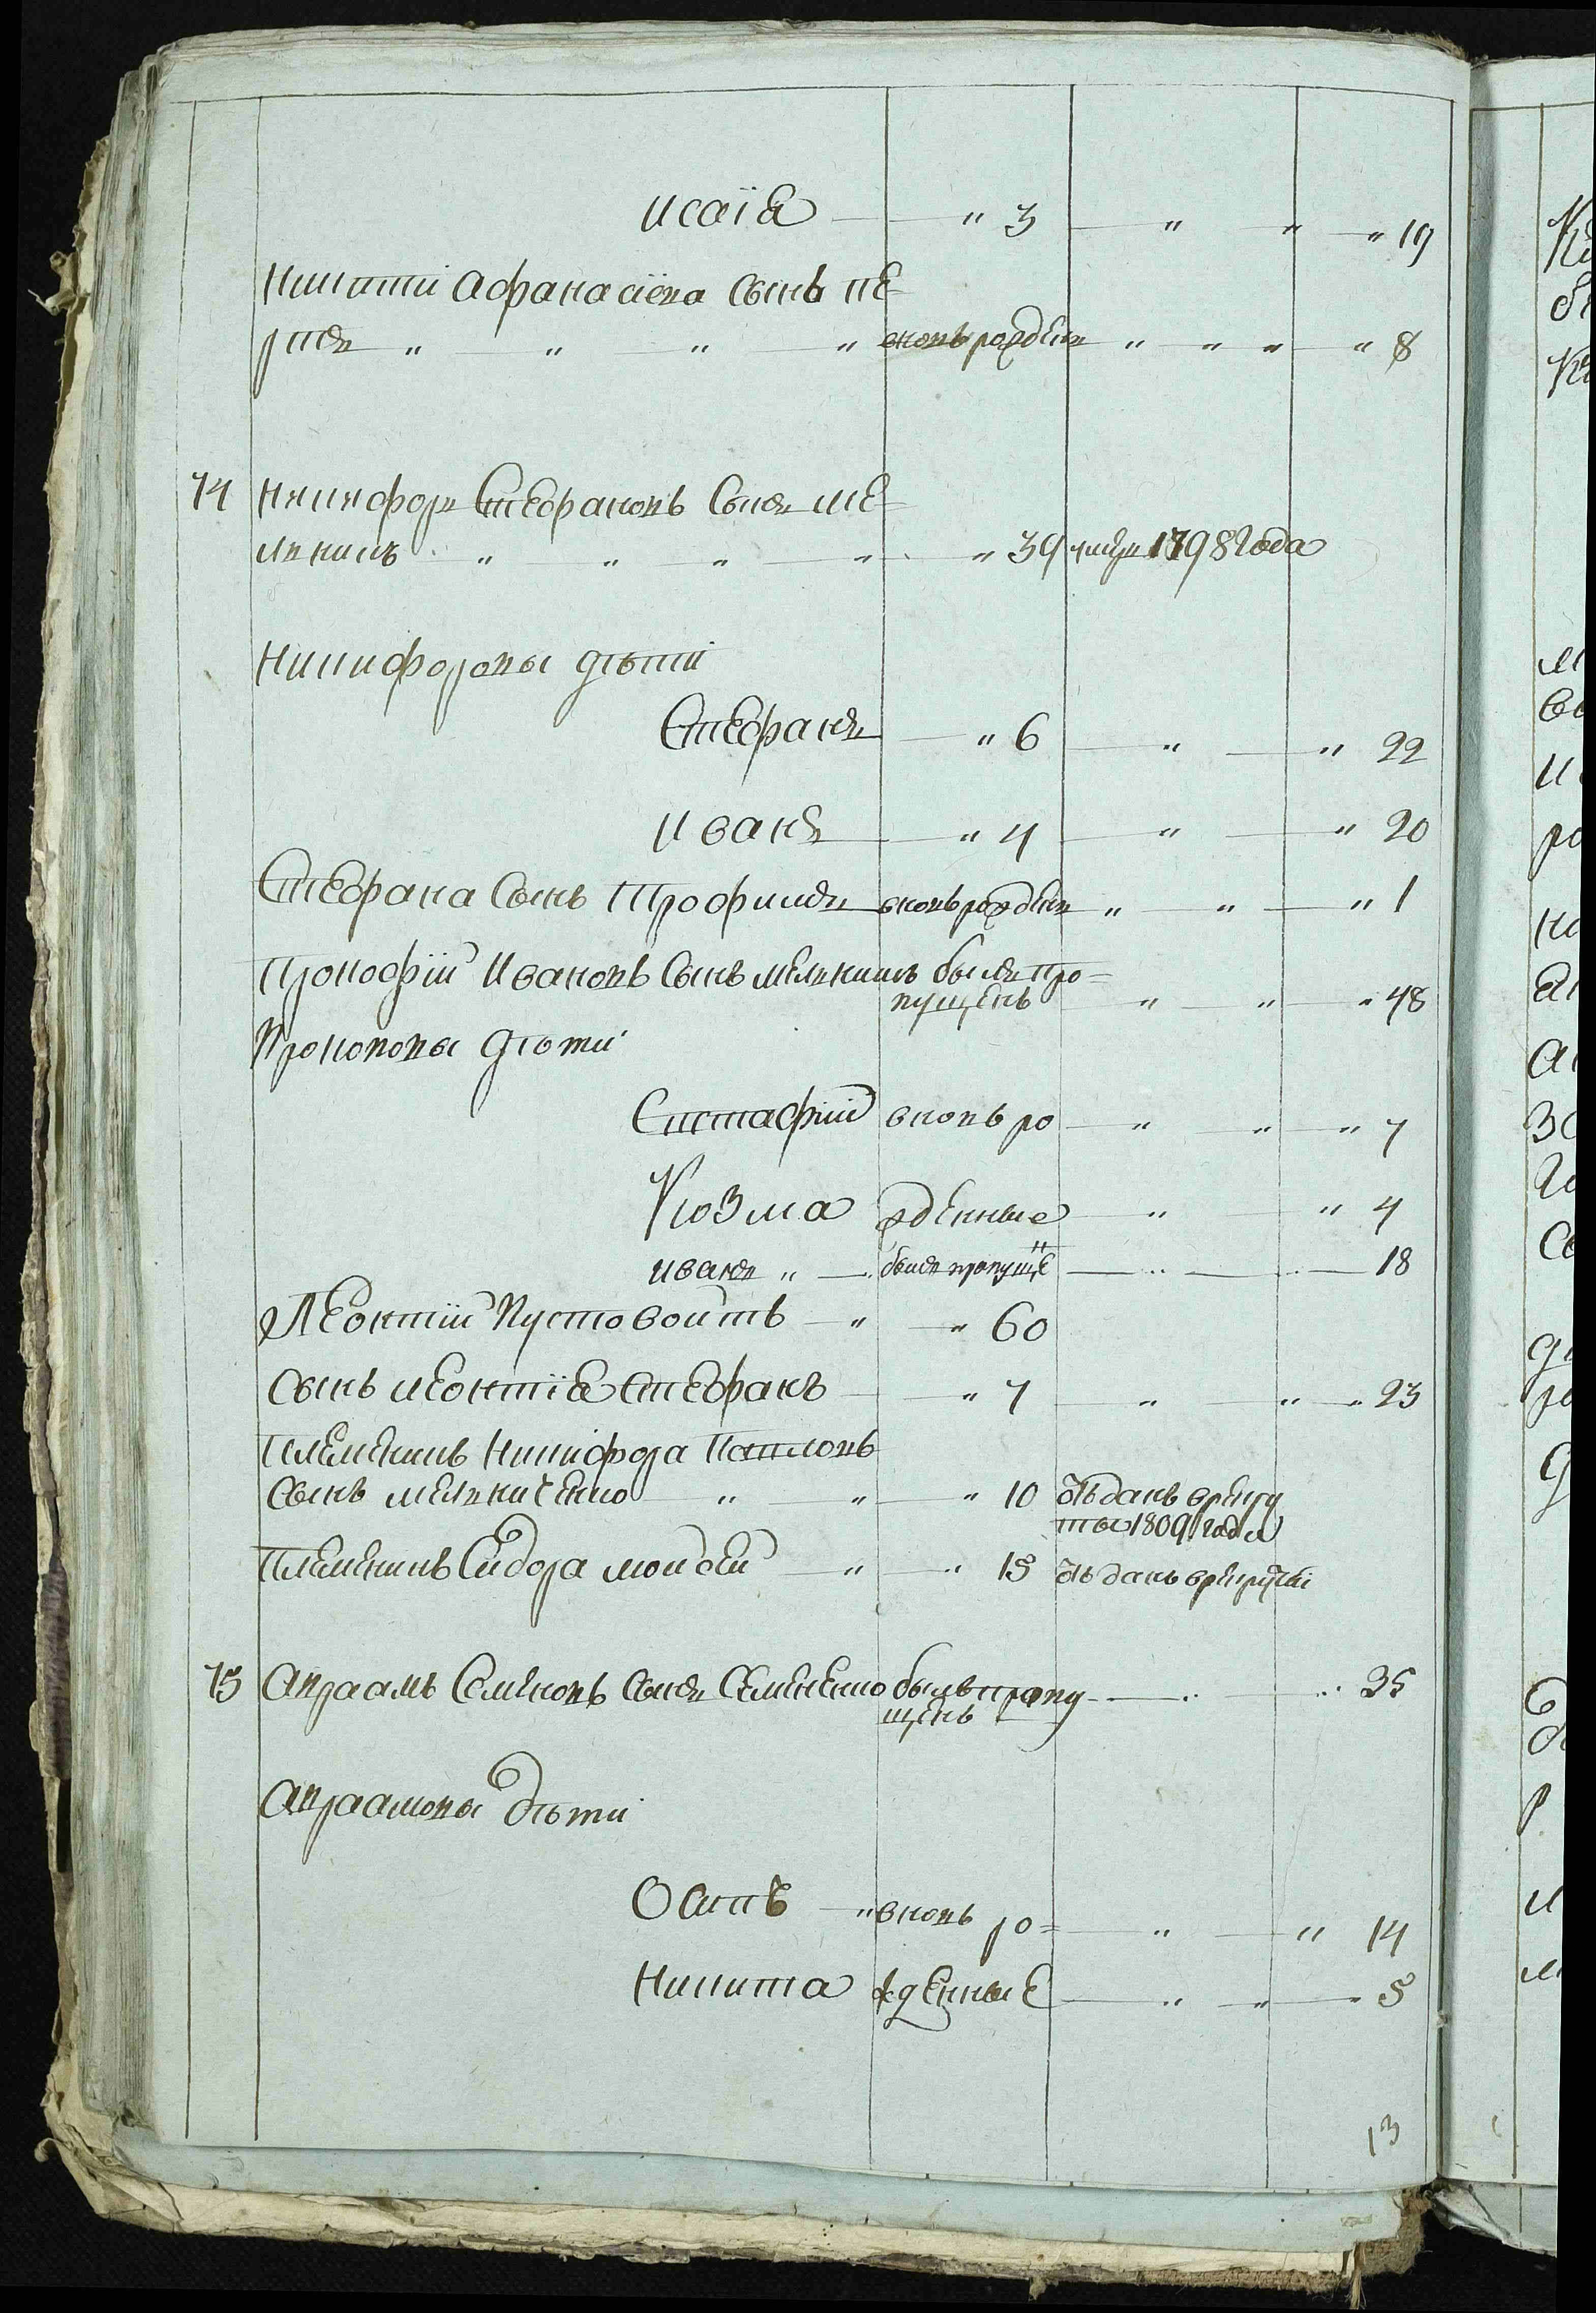 Исаія " 3 " " " 19
Никитти Афанасіева Сынъ пе=
" " " " вновь рожденъ " " " " 8
14 Никифоръ Стефановъ Сынъ Ме=
лникъ " " " " " 39 умеръ 1798 года
Никифоровы дѣти
Стефанъ " 6 " " 22
Иванъ " 4 " " 20
Стефана Сынъ Трофимъ вновь рожденъ " " " 1
Прокофій Ивановъ Сынъ мелникъ былъ про=
пущенъ " " " 48
Прокоповы дѣти
Евстафій вновь ро " " " 7
Козма жденные " " 4
Иванъ " былъ пропуще " 18
Леонтій Пустовойтъ " " 60
Сынъ леонтія Стефанъ " 7 " " " 23
Племеникъ Никифора Павловъ
Сынъ мелниченко " " " 10 отъданъ врекру
ты 1809 года
Племеникъ Сидора мойсей " " 15 отъданъ врекруты
15 Авраамъ Семеновъ Сынъ Семененко былъ пропу
щенъ 35
Авраамовы дѣти
Осипъ " вновь ро= " " 14
Никита жденные " " " 5
13